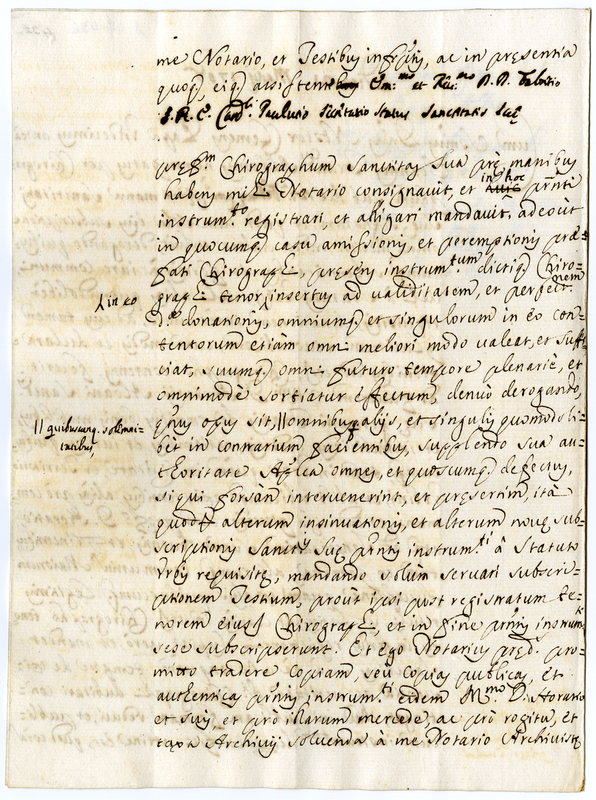 me Notario, et Testibus infr̃ptis, ac in presentia
quoq̃ eiq̃ assistentibus Em:mo et Rev:mo D. D. Fabritio
S. R. E. Card: Paulutio Secretario Status Sanctitatis Suę
pręfm̃ Chirographum Sanctitas Sua prę manibus
habens mihi Notario consignavit, et in hoc p̃rñti
instrum:to registrari, et alligari mandavit. adeout
in quocumq̃ casu amissionis, et peremptionis præ=
fati Chirographi, presens instrum:tum dictiq̃ Chiro=
graphi tenor, insertus ad validitatem, et perfect:nem
λ in eo
d:ę donationis λ omniumq̃ et singulorum in eo con=
tentorum etiam omni meliori modo valeat, et suffi
ciat, suumq̃ omni futuro tempore plenariè, et
omnimodè sortiatur effectum, denuò derogando,
|| quibuscunq. solemni=
tatibus
q̃nus opus sit, || omnibus aliis, et singulis quomodoli=
bet in contrarium facientibus, supplendo sua au=
thoritate Ap̃lica omnes, et quoscumq̃ defectus,
siqui forsan intervenerint, et pręsertim, ità
quod alterum insinuationis, et alterum novę sub=
scriptionis Sanctis Suę p̃rñtis instrum:ti à Statuto
Urbis requisitę, mandando solùm servari subscri=
ptionem Testium, prout ipsi post registratum te=
norem eiusd Chirographi, et in fine p̃rñtis instrum:ti
sese subscripserunt. Et Ego Notarius pręd: pro=
mitto tradere Copiam, seu copias publicas, et
authenticas p̃rñtis instrum:ti eidem Ill:mo D. Horatio
et suis, et prò illarum mercede, ac prò rogitu, et
taxa Archivij solvenda à me Notario Archivistę